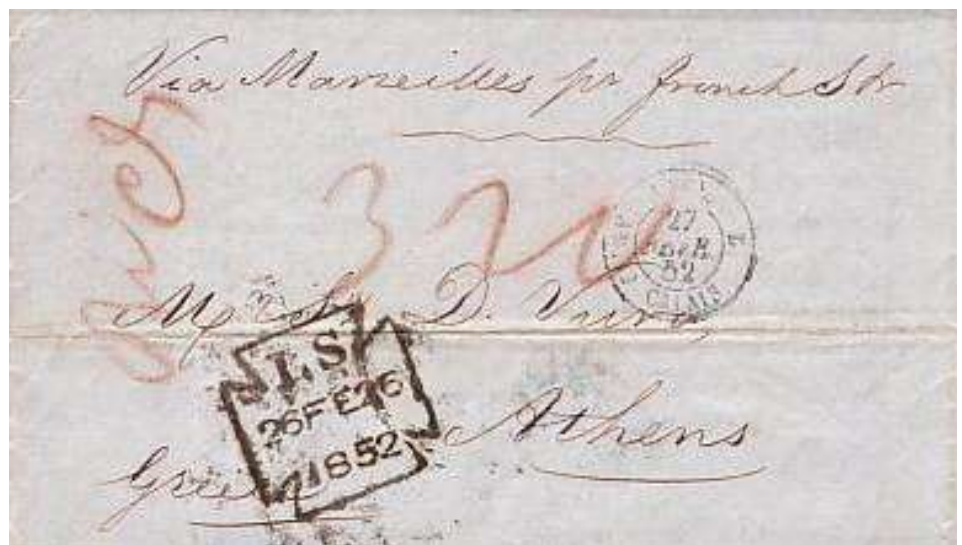 Via Marseilles pr french Str
320
27
FEVR
52
CALAIS
Mr S. D.
LS
26FE26
1852
Athens
Greece